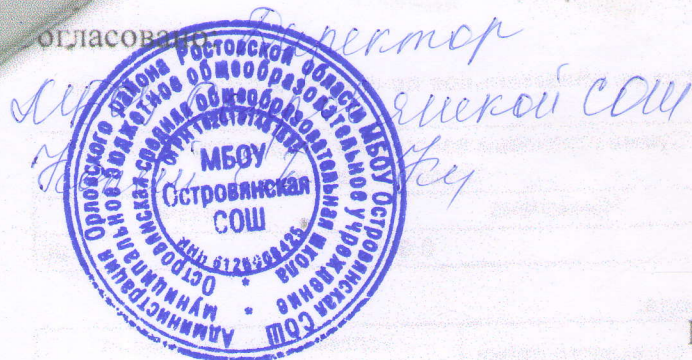 огласовано: Директор
МБОУ Островянской СОШ
Администрация Орловского района Ростовской области МБОУ Островянская СОШ
муниципальное бюджетное общеобразовательное учреждение
Островянская средняя общеобразовательная школа
МБОУ
Островянская
СОШ